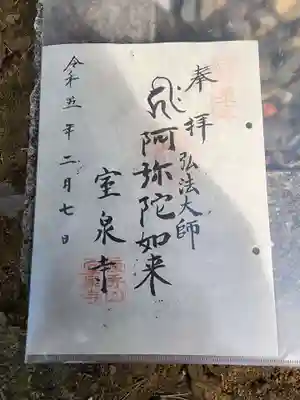 奉拝
弘法大師
阿弥陀如来
室泉寺
令和五年二月七日